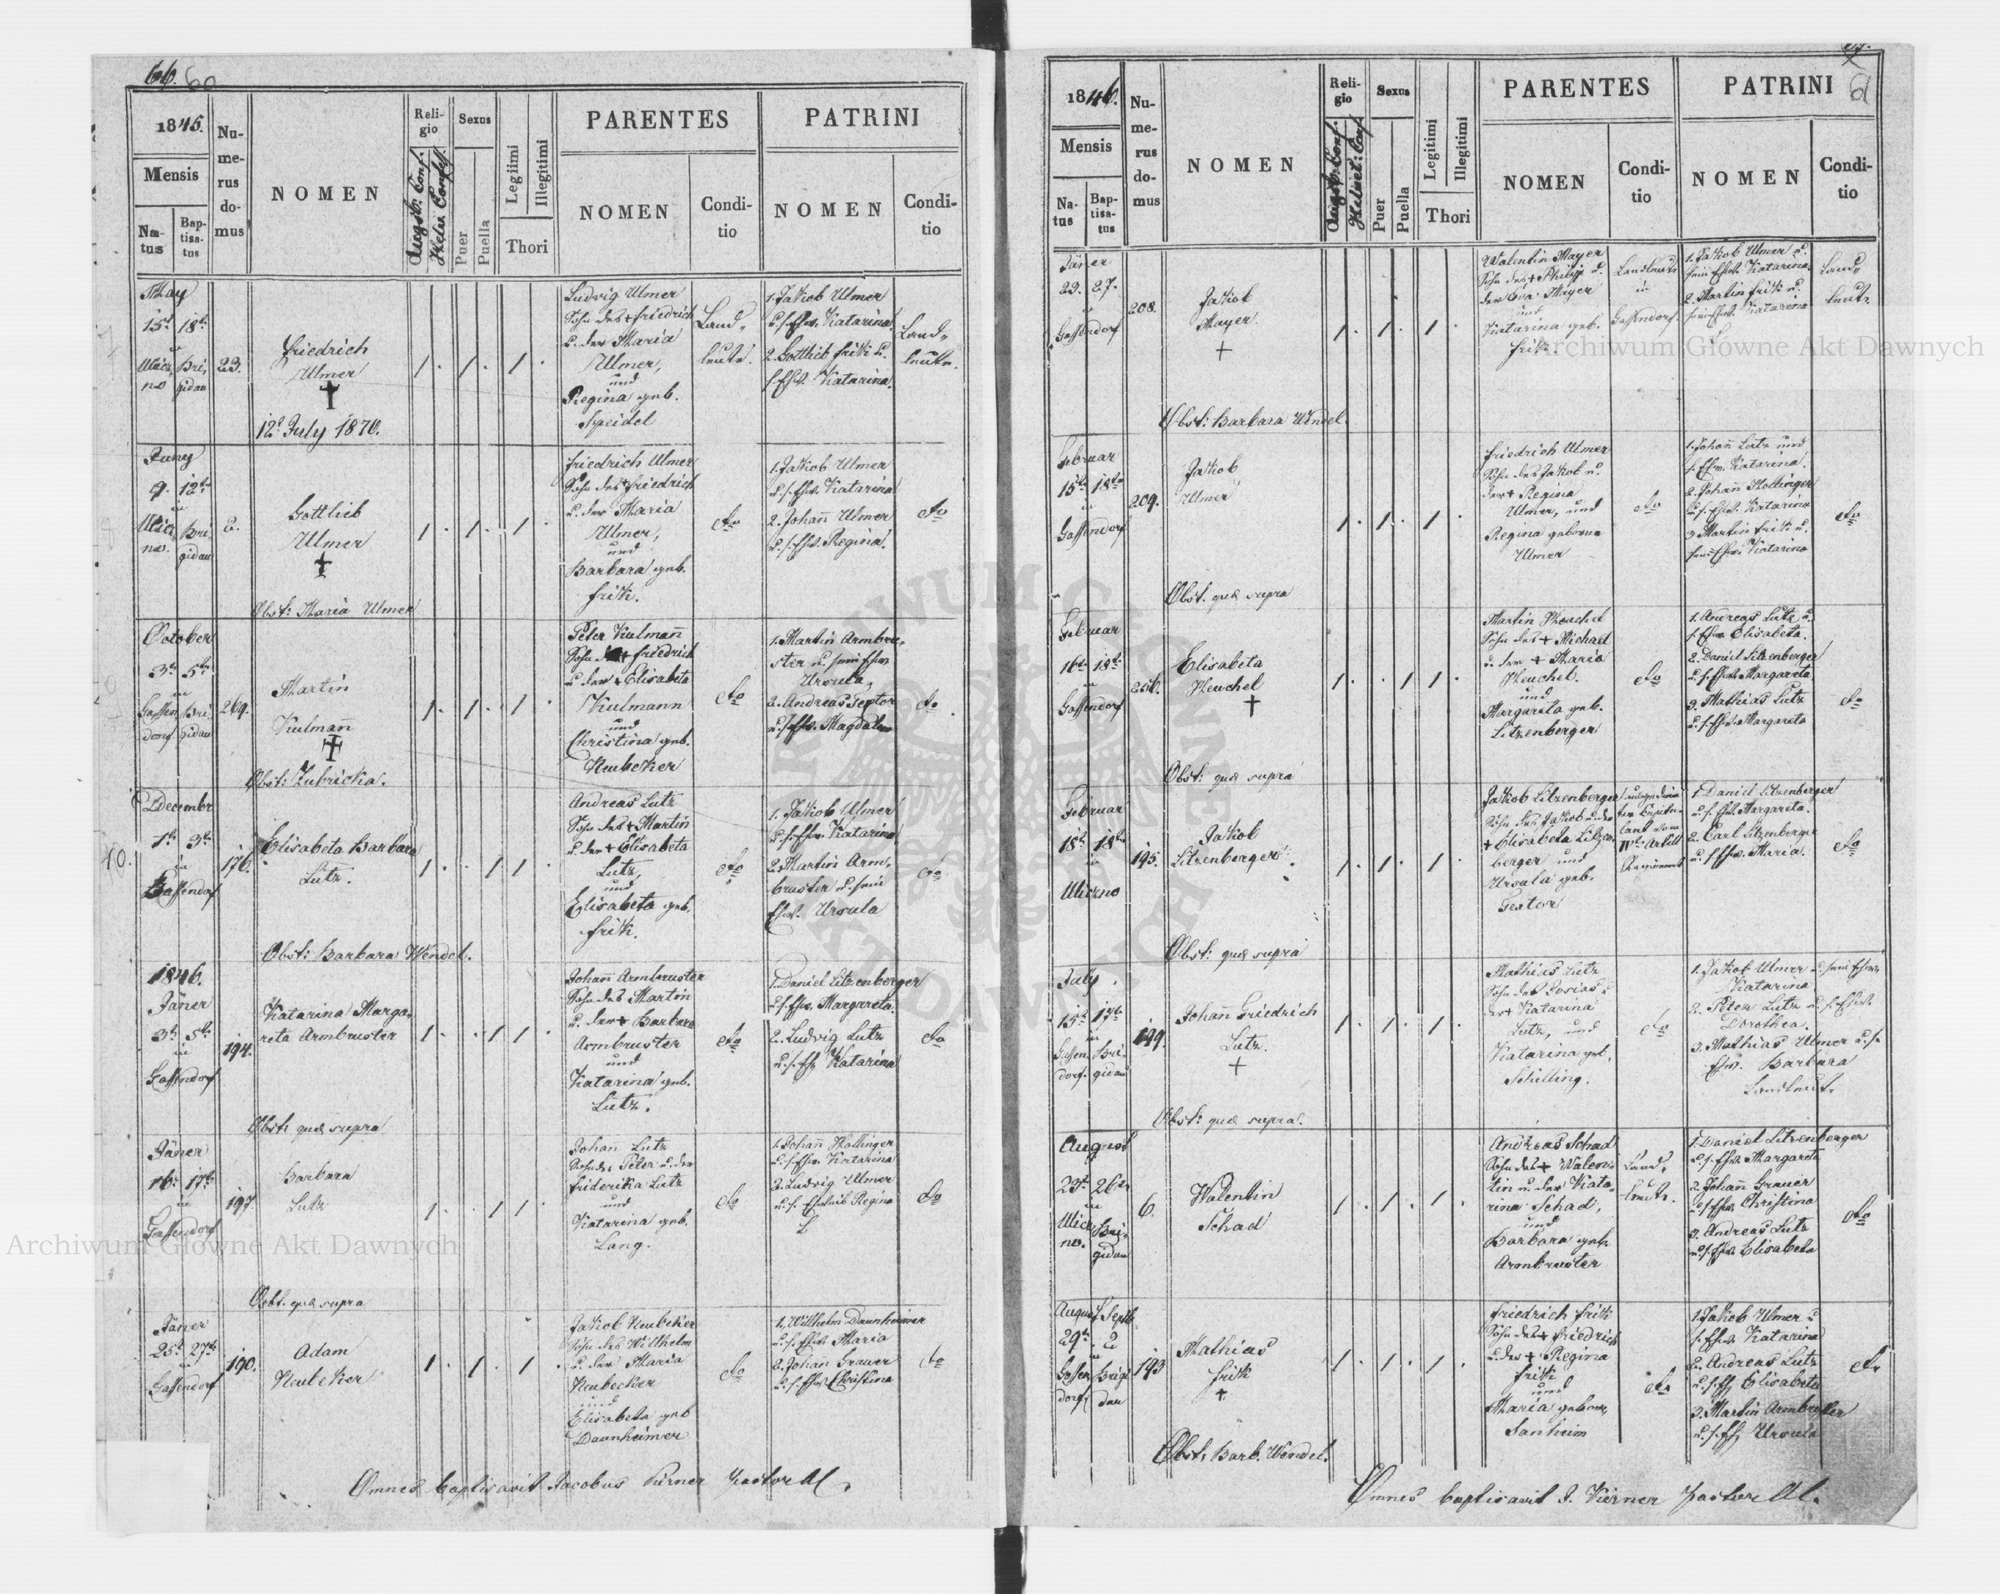 66. 60
1845.
Mensis
Na-
tus
Bap-
tisa-
tus
Nu-
me-
rus
do-
mus
NOMEN
Reli-
gio
Augsb. Conf.
Helv. Confess.
Sexus
Puer
Puella
Legitimi
Illegitimi
Thori
PARENTES
NOMEN
Condi-
tio
PATRINI
NOMEN
Condi-
tio
May
15t 18t
in
Ulicz, Bri,
no gidau
23.
Friedrich
Ulmer
12t July 1870.
1. 1. 1.
Ludvig Ulmer
Sohn des + Friedrich
u. der Maria
Ulmer,
und
Regina geb.
Speidel
Land,,
leute.
1. Jakob Ulmer
u. s. Ehw. Katarina
2. Gottlieb Frik u.
s. Ehw. Katarina.
Land,,
leute.
Juny
9. 12t
in
Ulicz, Bri,
no. gidau
Gottlieb
Ulmer
Obst: Maria Ulmer
1. 1. 1.
Friedrich Ulmer
Sohn des + Friedrich
u. der Maria
Ulmer,
und
Barbara geb.
Frik.
dto
1. Jakob Ulmer
u. s. Ehw. Katarina
2. Johañ Ulmer
u. s. Ehw. Regina.
dto
October
3t 5t
in
Gassen, Bri,
dorf gidau
269.
Martin
Kulmañ
Obst: Zubricka.
1. 1. 1.
Peter Kulmañ
Sohn des + Friedrich
u. der + Elisabeta
Kulmann
und
Christina geb.
Neubeker
dto
1. Martin Armbru,
ster u. sein Ehw.
Ursula,
2. Andreas Textor
u. s. Ehw. Magdalena
dto.
Decembr
1t 3t
in
Gassendorf
10.
176.
Elisabeta Barbara
Lutz.
Obst: Barbara Wendel.
1. 1 1.
Andreas Lutz
Sohn des + Martin
u. der + Elisabeta
Lutz,
und
Elisabeta geb.
Frik.
dto
1. Jakob Ulmer
u. s. Ehw. Katarina
2. Martin Arm,
bruster u. sein
Ehw. Ursula
dto
1846.
Jäner
3t 5t
in
Gassendorf
194.
Katarina Marga,
reta Armbruster
Obst: quæ supra
1. 1 1.
Johañ Armbruster
Sohn des Martin
u. der + Barbara
Armbruster
und
Katarina geb.
Lutz.
dto
1. Daniel Litzenberger
u. s. Ehw. Margareta.
2. Ludvig Lutz
u. s. Eh. Katarina
dto
Jäner
16t 17t
in
Gassendorf
197.
Barbara
Lutz
Obst. quæ supra
1. 1 1.
Johañ Lutz
Sohn des Peter u. der
Friderika Lutz
und
Katarina geb.
Lang.
dto
1. Johañ Hollinger
u. s. Ehw. Katarina
2. Ludvig Ulmer
u. s. Eheweib Regina
dto
Jäner
25t 27t
in
Gassendorf
190.
Adam
Neubeker
1. 1. 1.
Jakob Neubeker
Sohn des Wilhelm
u. der Maria
Neubecker
und
Elisabeta geb
Daunheimer
dto
1. Willhelm Daunheimer
u. s. Ehw. Maria
2. Johañ Grauer
u. s. Ehw. Christina
dto
Omnes baptisavit Jacobus Kürner Pastor Ul.
61
1846.
Mensis
Na-
tus
Bap-
tisa-
tus
Nu-
me-
rus
do-
mus
NOMEN
Reli-
gio
Augsb. Conf.
Helvet: Conf.
Sexus
Puer
Puella
Legitimi
Illegitimi
Thori
PARENTES
NOMEN
Condi-
tio
PATRINI
NOMEN
Condi-
tio
Jäner
23. 27.
in
Gassendorf
208.
Jakob
Mayer.
Obst: Barbara Wendel.
1. 1. 1.
Walentin Mayer
Sohn des + Philipp u.
der Eva Mayer
und
Katarina geb.
Frik.
Landleute
in
Gassendorf.
1. Jakob Ulmer u.
sein Ehw. Katarina.
2. Martin Frik u.
sein Ehw. Katarina
Land,,
leute
Februar
15t 18t
in
Gassendorf
209.
Jakob
Ulmer
Obst. quæ supra
1. 1. 1.
Friedrich Ulmer
Sohn des Jakob u.
der + Regina
Ulmer, und
Regina geborne
Ulmer
dto
1. Johañ Lutz und
s. Ehw. Katarina.
2. Johañ Hollinger
u. s. Ehw. Katarina
3. Martin Frik u.
sein Ehw. Katarina
dto
Februar
16t 18t
in
Gassendorf
256.
Elisabeta
Heuchel
Obst: quæ supra
1. 1 1.
Martin Heuchel
Sohn des + Michael
u. der + Maria
Heuchel.
und
Margareta geb.
Litzenberger
dto
1. Andreas Lutz u.
s. Ehw. Elisabeta.
2. Daniel Litzenberger
u. s. Ehw. Margareta
3. Mathias Lutz
u. s. Ehw. Margareta
dto
Februar
18t 18t
in
Uliczno
195.
Jakob
Litzenberger.
Obst: quæ supra
1. 1. 1.
Jakob Litzenberger
Sohn des Jakob u. der
+ Elisabeta Litzen,
berger und
Ursula geb.
Textor
1. Daniel Litzenberger
u. s. Ehw. Margareta.
2. Carl Litzenberger
u. s. Ehw. Maria.
dto
July
15t 17t
in
Gassen, Bri,
dorf. gidau
199.
Johañ Friedrich
Lutz.
Obst: quæ supra.
1. 1. 1.
Mathias Lutz
Sohn des Josias u.
der + Katarina
Lutz, und
Katarina geb.
Schilling.
dto
1. Jakob Ulmer u. sein Ehw.
Katarina
2. Peter Lutz u. s. Ehw.
Dorothea.
3. Mathias Ulmer u. s.
Ehw. Barbara
Landleute
August
23t 26t
in
Ulicz, Bri,
no. gidau
6.
Walentin
Schad
1. 1. 1.
Andreas Schad
Sohn des + Walen,
tin u. der Kata,
rina Schad,
und
Barbara geb.
Armbruster
Land,,
leute.
1. Daniel Litzenberger
u. s. Ehw. Margareta
2. Johañ Grauer
u. s. Ehw. Christina
3. Andreas Lutz
u. s. Ehw. Elisabeta
dto
August Septb
29t 2
in
Gassen, Brigi
dorf, dau
193
Mathias
Frik
Obst: Barb. Wendel.
1. 1. 1.
Friedrich Frik
Sohn des + Friedrich
u. der + Regina
Frik
und
Maria geborne,
Sanheim
dto
1. Jakob Ulmer u
s. Ehw. Katarina
2. Andreas Lutz
u. s. Eh. Elisabeta
3. Martin Armbruster
u. s. Eh. Ursula
dto
Omnes baptisavit J. Kürner Pastor Ul.
Archiwum Główne Akt Dawnych
Archiwum Główne Akt Dawnych